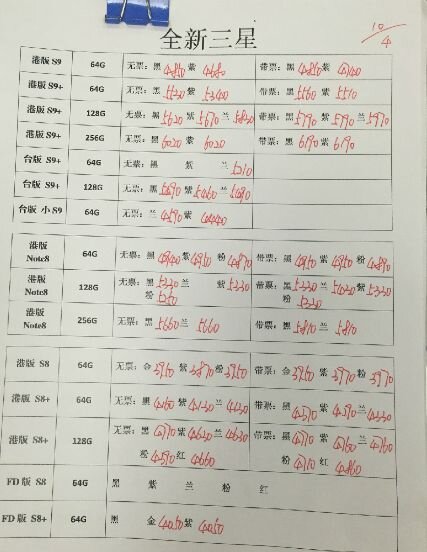 10/4
全新三星
港版 S9 64G 无票：黑 4850 紫 4680 带票：黑 4850 紫 4740
港版 S9+ 64G 无票：黑 5530 紫 5400 带票：黑 5560 紫 5510
港版 S9+ 128G 无票：黑 5620 紫 5670 兰 5820 带票：黑 5790 紫 5790 兰 5970
港版 S9+ 256G 无票：黑 6020 紫 6020 带票：黑 6190 紫 6190
台版 S9+ 64G 无票：黑 紫 兰 5210
台版 S9+ 128G 无票：黑 5690 紫 5460 兰 5690
台版 小 S9 64G 无票：兰 4590 紫 4440
港版 Note8 64G 无票：黑 4940 紫 4950 粉 4870 带票：黑 4950 紫 4950 粉 4890
港版 Note8 128G 无票：黑 5230 兰 紫 5230 带票：黑 5230 兰 紫 5330
粉 5250 粉 5330
港版 Note8 256G 无票：黑 5660 兰 5660 带票：黑 5810 兰 5810
港版 S8 64G 无票：金 3950 紫 3870 粉 3950 带票：金 3950 紫 3970 粉 3970
港版 S8+ 64G 无票：黑 4160 紫 4130 兰 4130 带票：黑 4370 紫 4390 兰 4330
港版 S8+ 128G 无票：黑 4770 紫 4620 兰 4630 带票：黑 4770 紫 4760 兰 4760
粉 4590 红 4660 粉 4710 红 4860
FD 版 S8 64G 黑 紫 兰 粉 红
FD 版 S8+ 64G 黑 金 4050 紫 4050